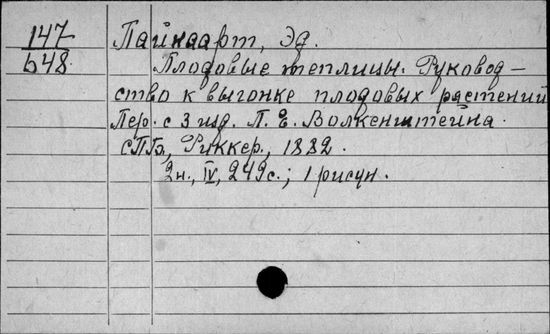 147
648
Пайнаарт, Эд.
Плодовые теплицы. Руковод-
ство к выгонке плодовых растений
Пер. с 3 изд. П. Е. Волкенштейна.
СПБ, Риккер, 1882.
2н., IV, 249с.; 1 рисун.